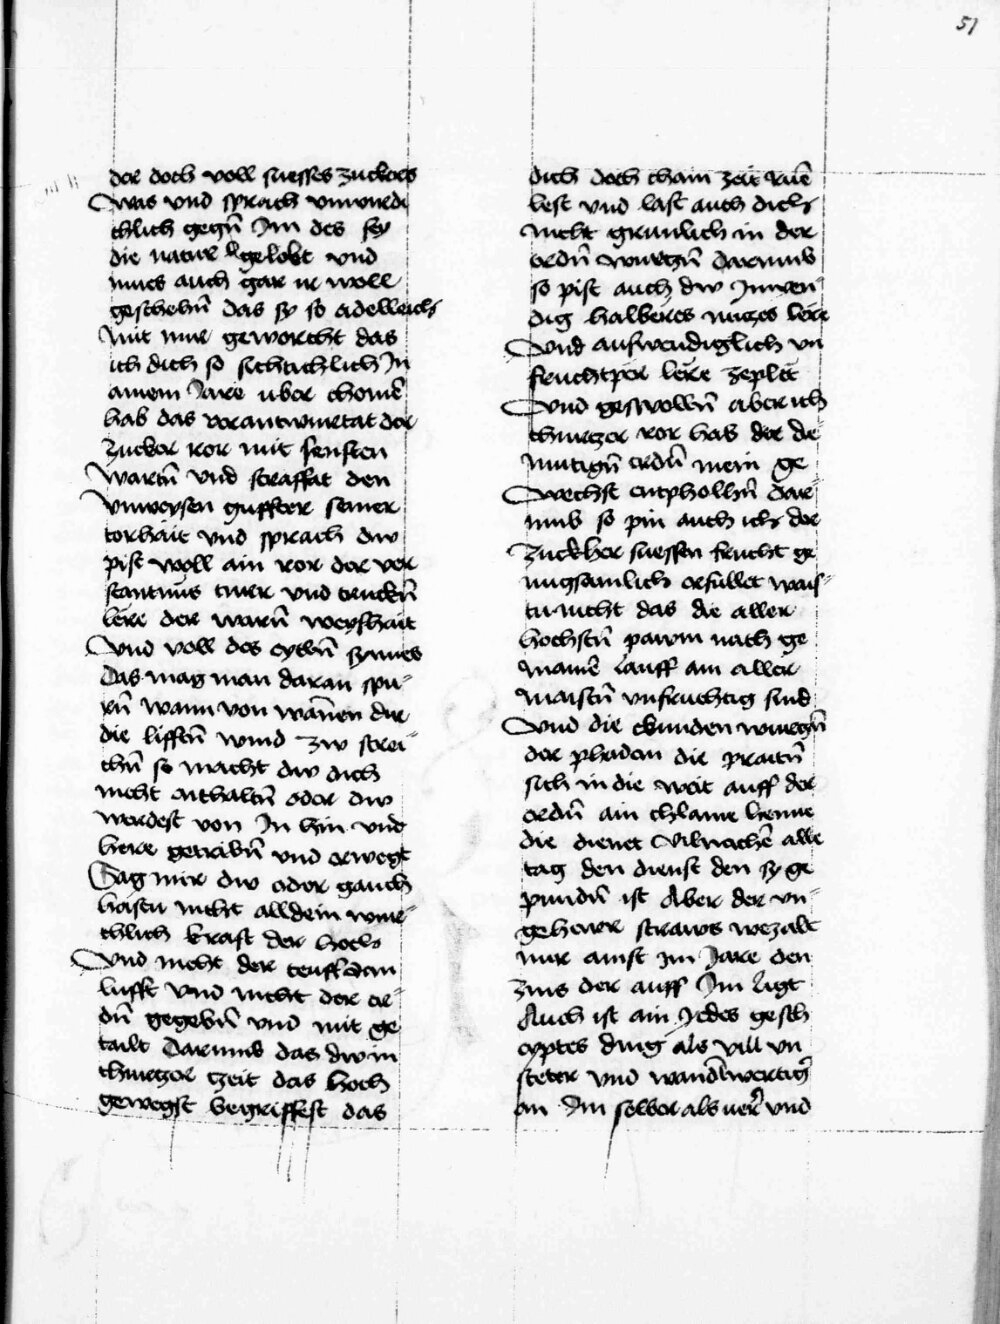 51
der doch voll suesses zuckers
Was vnd sprach vnwurdi
chlich gegn̄ Im des sey
die natur gelobt vnd
mues auch gar ir woll
geschehn̄ das sy so adelleich
mit mir geworcht das
ich dich so sichtichlich In
ainem Jare uber chomē
hab das verantwurtat der
zucker ror mit senften
Wartn̄ vnd straffat den
vnweysen guffter seiner
torhait vnd sprach dw
pist woll ain ror der ver
stantnus turr vnd truckn̄
lere der warn̄ weyshait
Vnd voll des eytln̄ synnes
Das mag man daran spu
rn̄ wann von wannen dir
die lifftn̄ wind zw strei
chn̄ so macht dw dich
nicht enthaltn̄ oder dw
werdest von In hin vnd
here getribn̄ vnd erwegt
Sag mir dw oder gauch
hastu nicht alldein wur
chlich kraft der hoch
Vnd nicht der teuff dem
lufft vnd nicht der er
dn̄ gegebn̄ vnd mit ge
tailt Darumb das dw in
churtzer tzeit das hoch
gewegst begriffest das
dich doch chain zeit rue
lest vnd last auch dich
nicht grunlich in der
erdn̄ wurtzn̄ darumb
so pist auch dw Innwen
dig halberes nuzes lere
Vnd auswendiglich vn
fruchtper lere zeplet
Vnd geswolln̄ aber ich
churtzer ror hab der die
mutign̄ erdn̄ mein ge
Wechst enpholhn̄ dar
umb so pin auch ich der
zuckher suessen frucht ge
nugsamlich erfullet wais
tu nicht das die aller
hochstn̄ pawm nach ge
mainē lauff am aller
maistn̄ vnfruchtig sind
Vnd die
der phaden die praitn̄
sich in die weit auff der
erdn̄ ain chlaine henne
die dienet alle
tag den dienst den sy ge
pundn̄ ist Aber der vn
gehewr straws wezalt
nur ainst im Jare den
zins der auff Im ligt
Auch ist ain Jedes gesch
epftes ding als vill vn
steter vnd wandlwertig
an Im selber als verr vnd